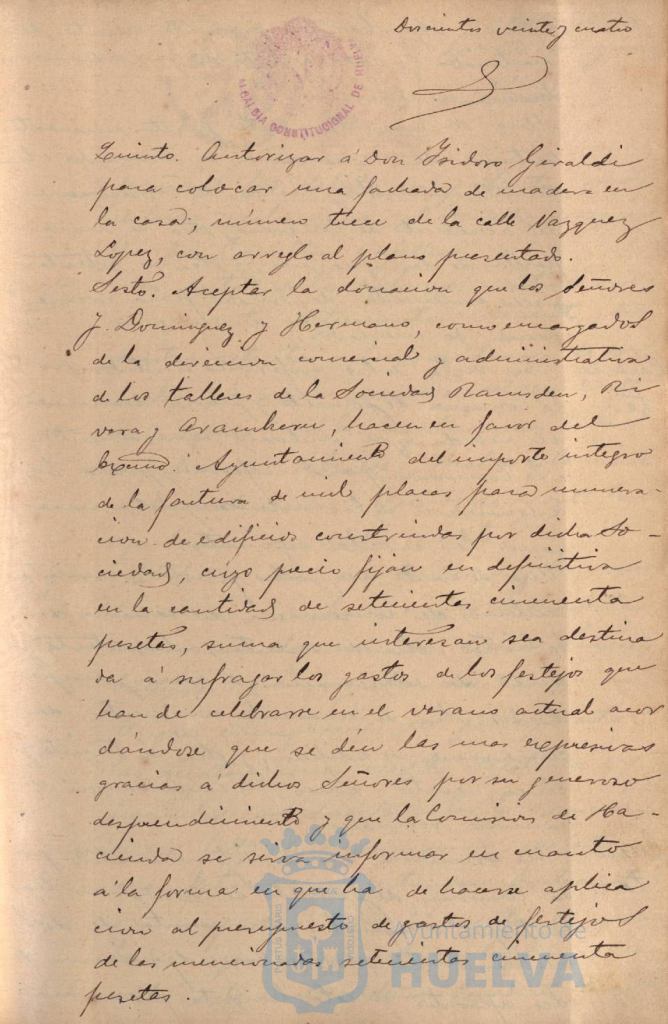 Doscientos veinte y cuatro
ALCALDIA CONSTITUCIONAL DE HUELVA
Quinto. Autorizar á Don Isidoro Giraldi
para colocar una fachada de madera en
la casa, número trece de la calle Vazquez
Lopez, con arreglo al plano presentado.
Sesto. Aceptar la donacion que los Señores
J. Dominguez y Hermano, como encargados
de la direccion comercial y administrativa
de los talleres de la Sociedad Ramsden, Ri
vera y Aramburu, hacen en favor del
Excmo. Ayuntamiento del importe integro
de la factura de mil placas para numera-
cion de edificios construidas por dicha So-
ciedad, cuyo precio fijan en definitiva
en la cantidad de setecientas cincuenta
pesetas, suma que interesan sea destina
da á sufragar los gastos de los festejos que
han de celebrarse en el verano actual acor
dándose que se dén las mas expresivas
gracias á dichos Señores por su generoso
desprendimiento y que la Comision de Ha-
cienda se sirva informar en cuanto
á la forma en que ha de hacerse aplica
cion al presupuesto de gastos de festejos
de las mencionadas setecientas cincuenta
pesetas.
Ayuntamiento de
HUELVA